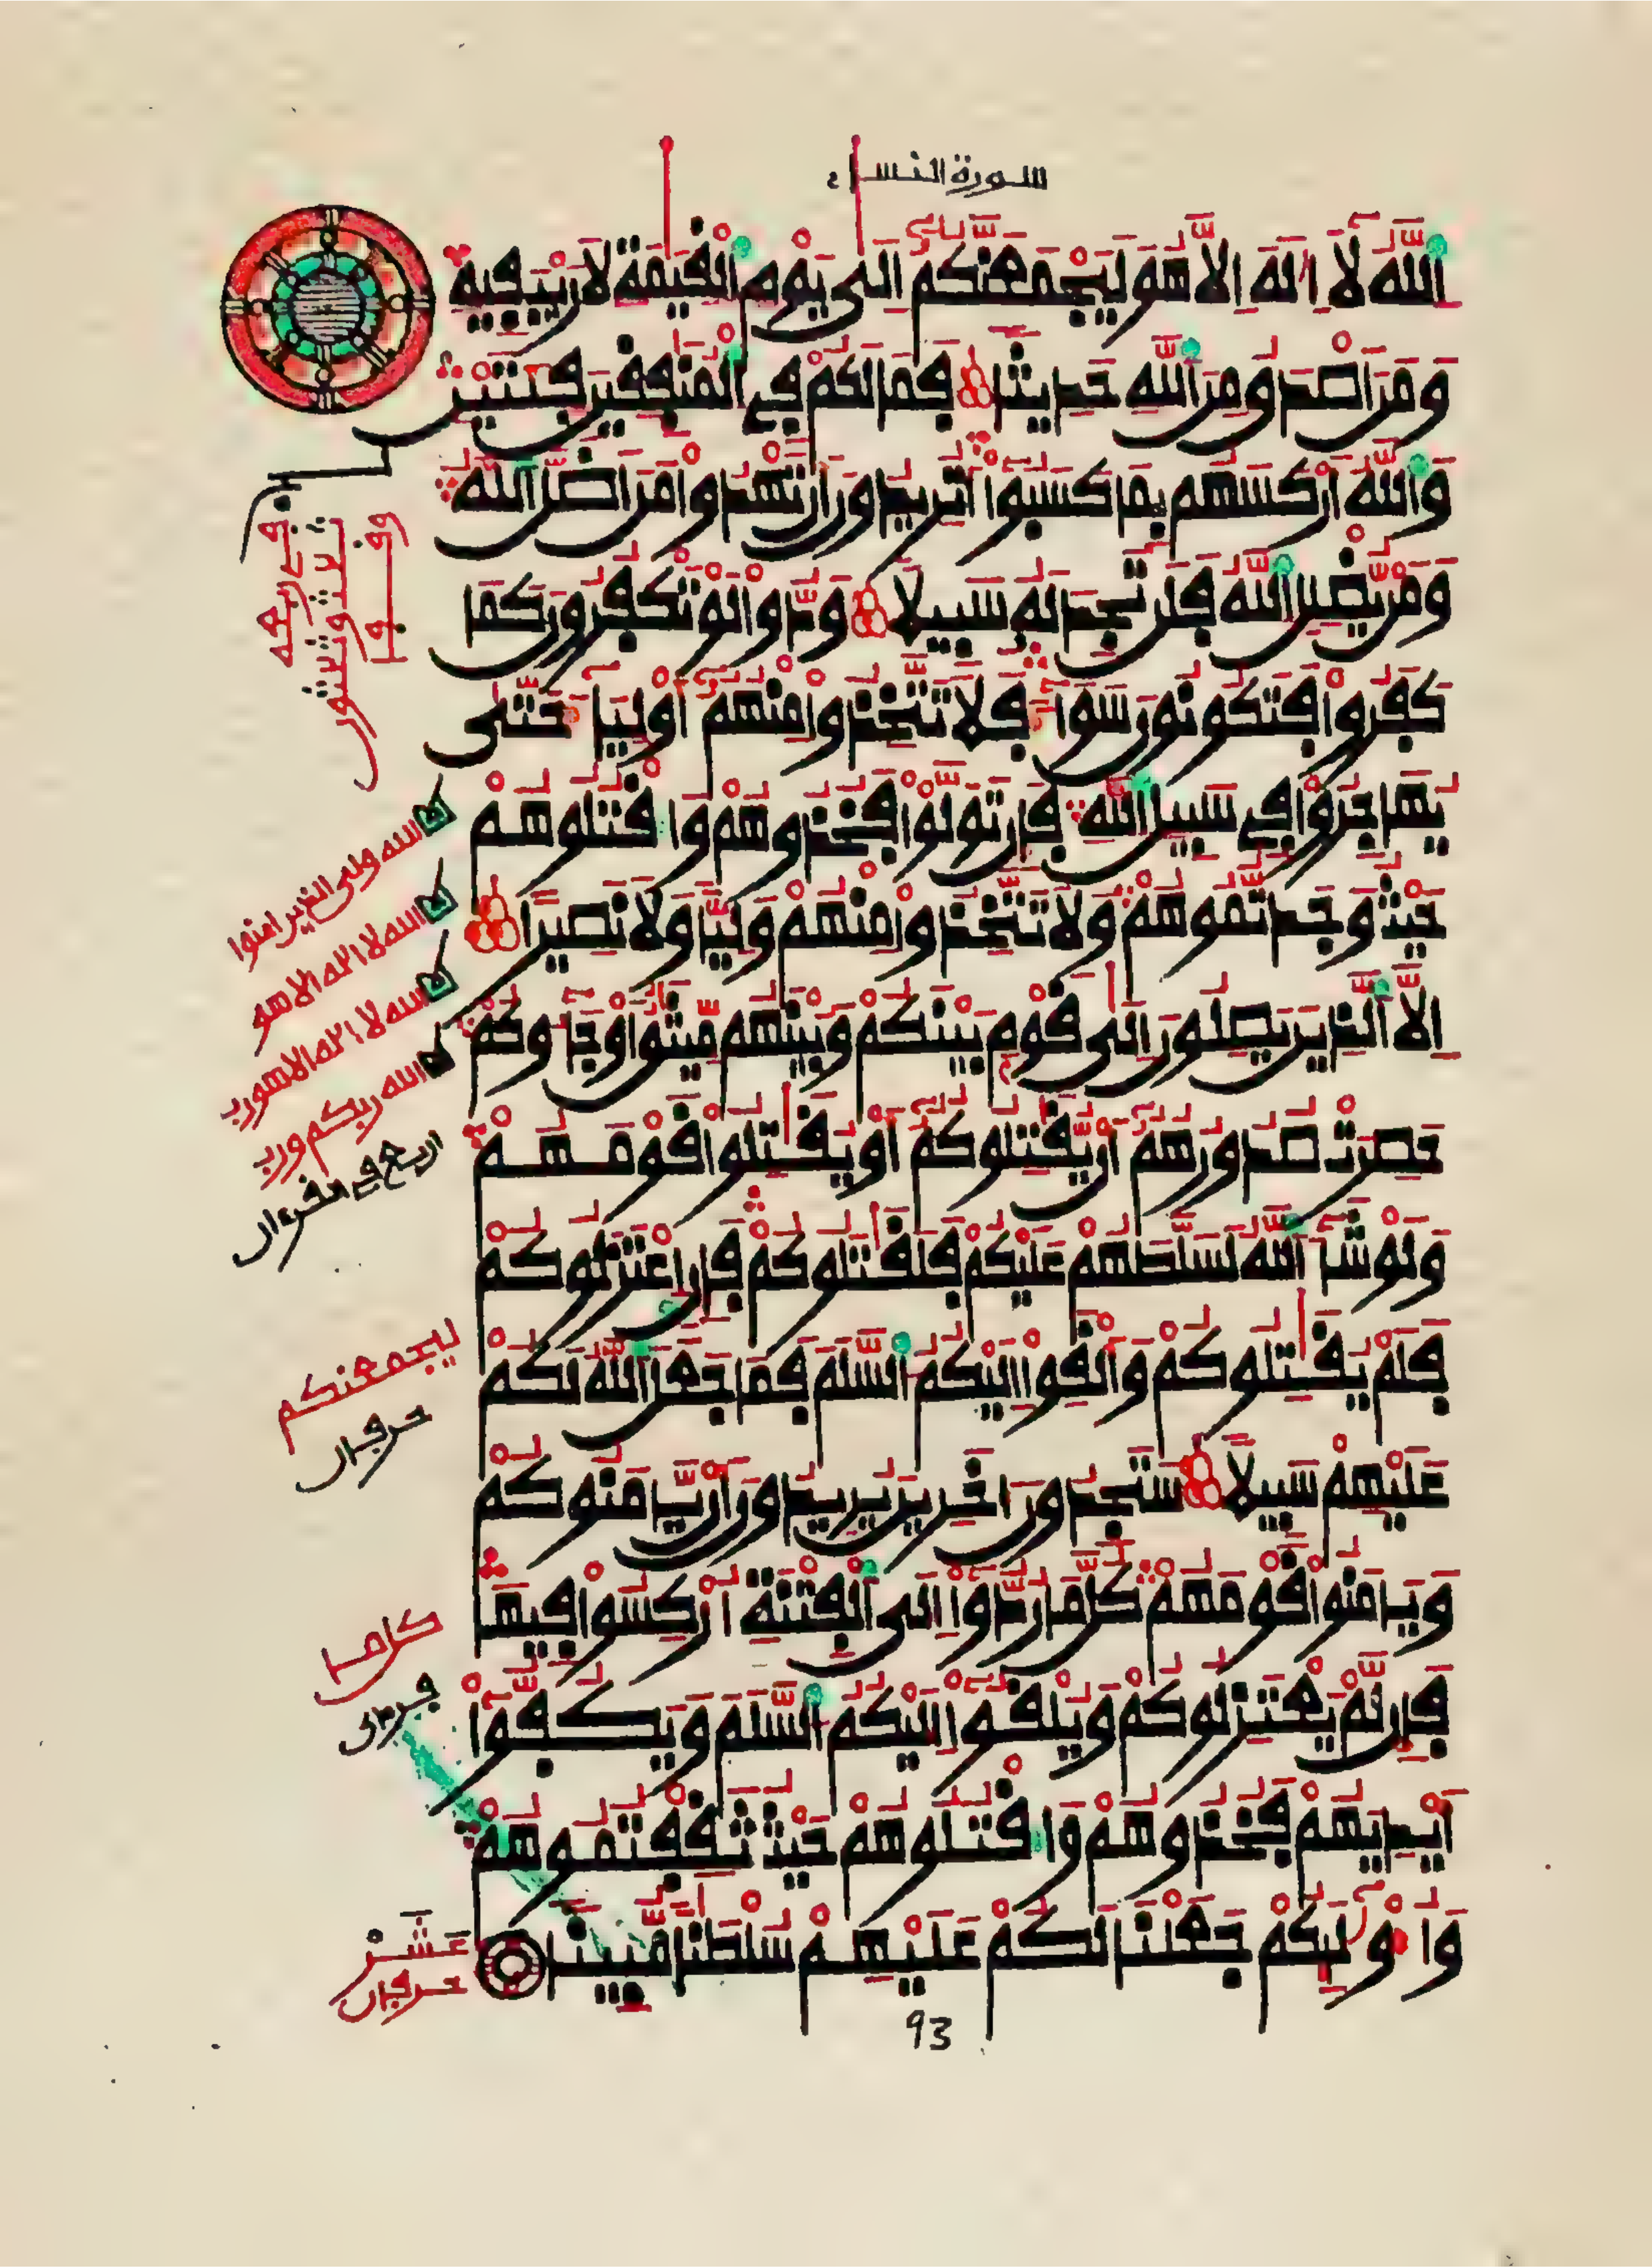 سورة النساء
اَ۬للَّهُ لَا إِلَٰهَ إِلَّا هُوَ لَيَجْمَعَنَّكُمْ إِلَىٰ يَوْمِ اِ۬لْقِيَٰمَةِ لَا رَيْبَ فِيهِ
وَمَنَ اَصْدَقُ مِنَ اَ۬للَّهِ حَدِيثٗا فَمَا لَكُمْ فِي اِ۬لْمُنَٰفِقِينَ فِئَتَيْنِ
وَاللَّهُ أَرْكَسَهُم بِمَا كَسَبُوٓا۟ أَتُرِيدُونَ أَن تَهْدُوا۟ مَنَ اَضَلَّ اَ۬للَّهُ
وَمَنْ يُّضْلِلِ اِ۬للَّهُ فَلَن تَجِدَ لَهُۥ سَبِيلٗا وَدُّوا۟ لَوْ تَكْفُرُونَ كَمَا
كَفَرُوا۟ فَتَكُونُونَ سَوَآءٗ فَلَا تَتَّخِذُوا۟ مِنْهُمُۥٓ أَوْلِيَآءَ حَتَّىٰ
يُهَاجِرُوا۟ فِي سَبِيلِ اِ۬للَّهِ فَإِن تَوَلَّوْا۟ فَخُذُوهُمْ وَاقْتُلُوهُمْ
حَيْثُ وَجَدتُّمُوهُمْ وَلَا تَتَّخِذُوا۟ مِنْهُمْ وَلِيّٗا وَلَا نَصِيرًا
إِلَّا اَ۬لذِينَ يَصِلُونَ إِلَىٰ قَوْمِۭ بَيْنَكُمْ وَبَيْنَهُم مِّيثَٰقٌ اَوْ جَآءُوكُمْ
حَصِرَتْ صُدُورُهُمُۥٓ أَنْ يُّقَٰتِلُوكُمُۥٓ أَوْ يُقَٰتِلُوا۟ قَوْمَهُمْ
وَلَوْ شَآءَ اَ۬للَّهُ لَسَلَّطَهُمْ عَلَيْكُمْ فَلَقَٰتَلُوكُمْ فَإِنِ اِ۪عْتَزَلُوكُمْ
فَلَمْ يُقَٰتِلُوكُمْ وَأَلْقَوِا۟ إِلَيْكُمُ اُ۬لسَّلَمَ فَمَا جَعَلَ اَ۬للَّهُ لَكُمْ
عَلَيْهِمْ سَبِيلٗا سَتَجِدُونَ ءَاخَرِينَ يُرِيدُونَ أَنْ يَّامَنُوكُمْ
وَيَامَنُوا۟ قَوْمَهُمْ كُلَّ مَا رُدُّوٓا۟ إِلَى اَ۬لْفِتْنَةِ أُرْكِسُوا۟ فِيهَا
فَإِن لَّمْ يَعْتَزِلُوكُمْ وَيُلْقُوٓا۟ إِلَيْكُمُ اُ۬لسَّلَمَ وَيَكُفُّوٓا۟
أَيْدِيَهُمْ فَخُذُوهُمْ وَاقْتُلُوهُمْ حَيْثُ ثَقِفْتُمُوهُمْ
وَأُو۟لَٰٓئِكُمْ جَعَلْنَا لَكُمْ عَلَيْهِمْ سُلْطَٰنٗا مُّبِينٗا
الله ولي الذين امنوا
الله لا اله الا هو
الله لا اله الا هو رب
الله ربكم ورب
اربع في القرءان
ليجمعنكم
حرفان
كل ما
عشر
حرفان
93